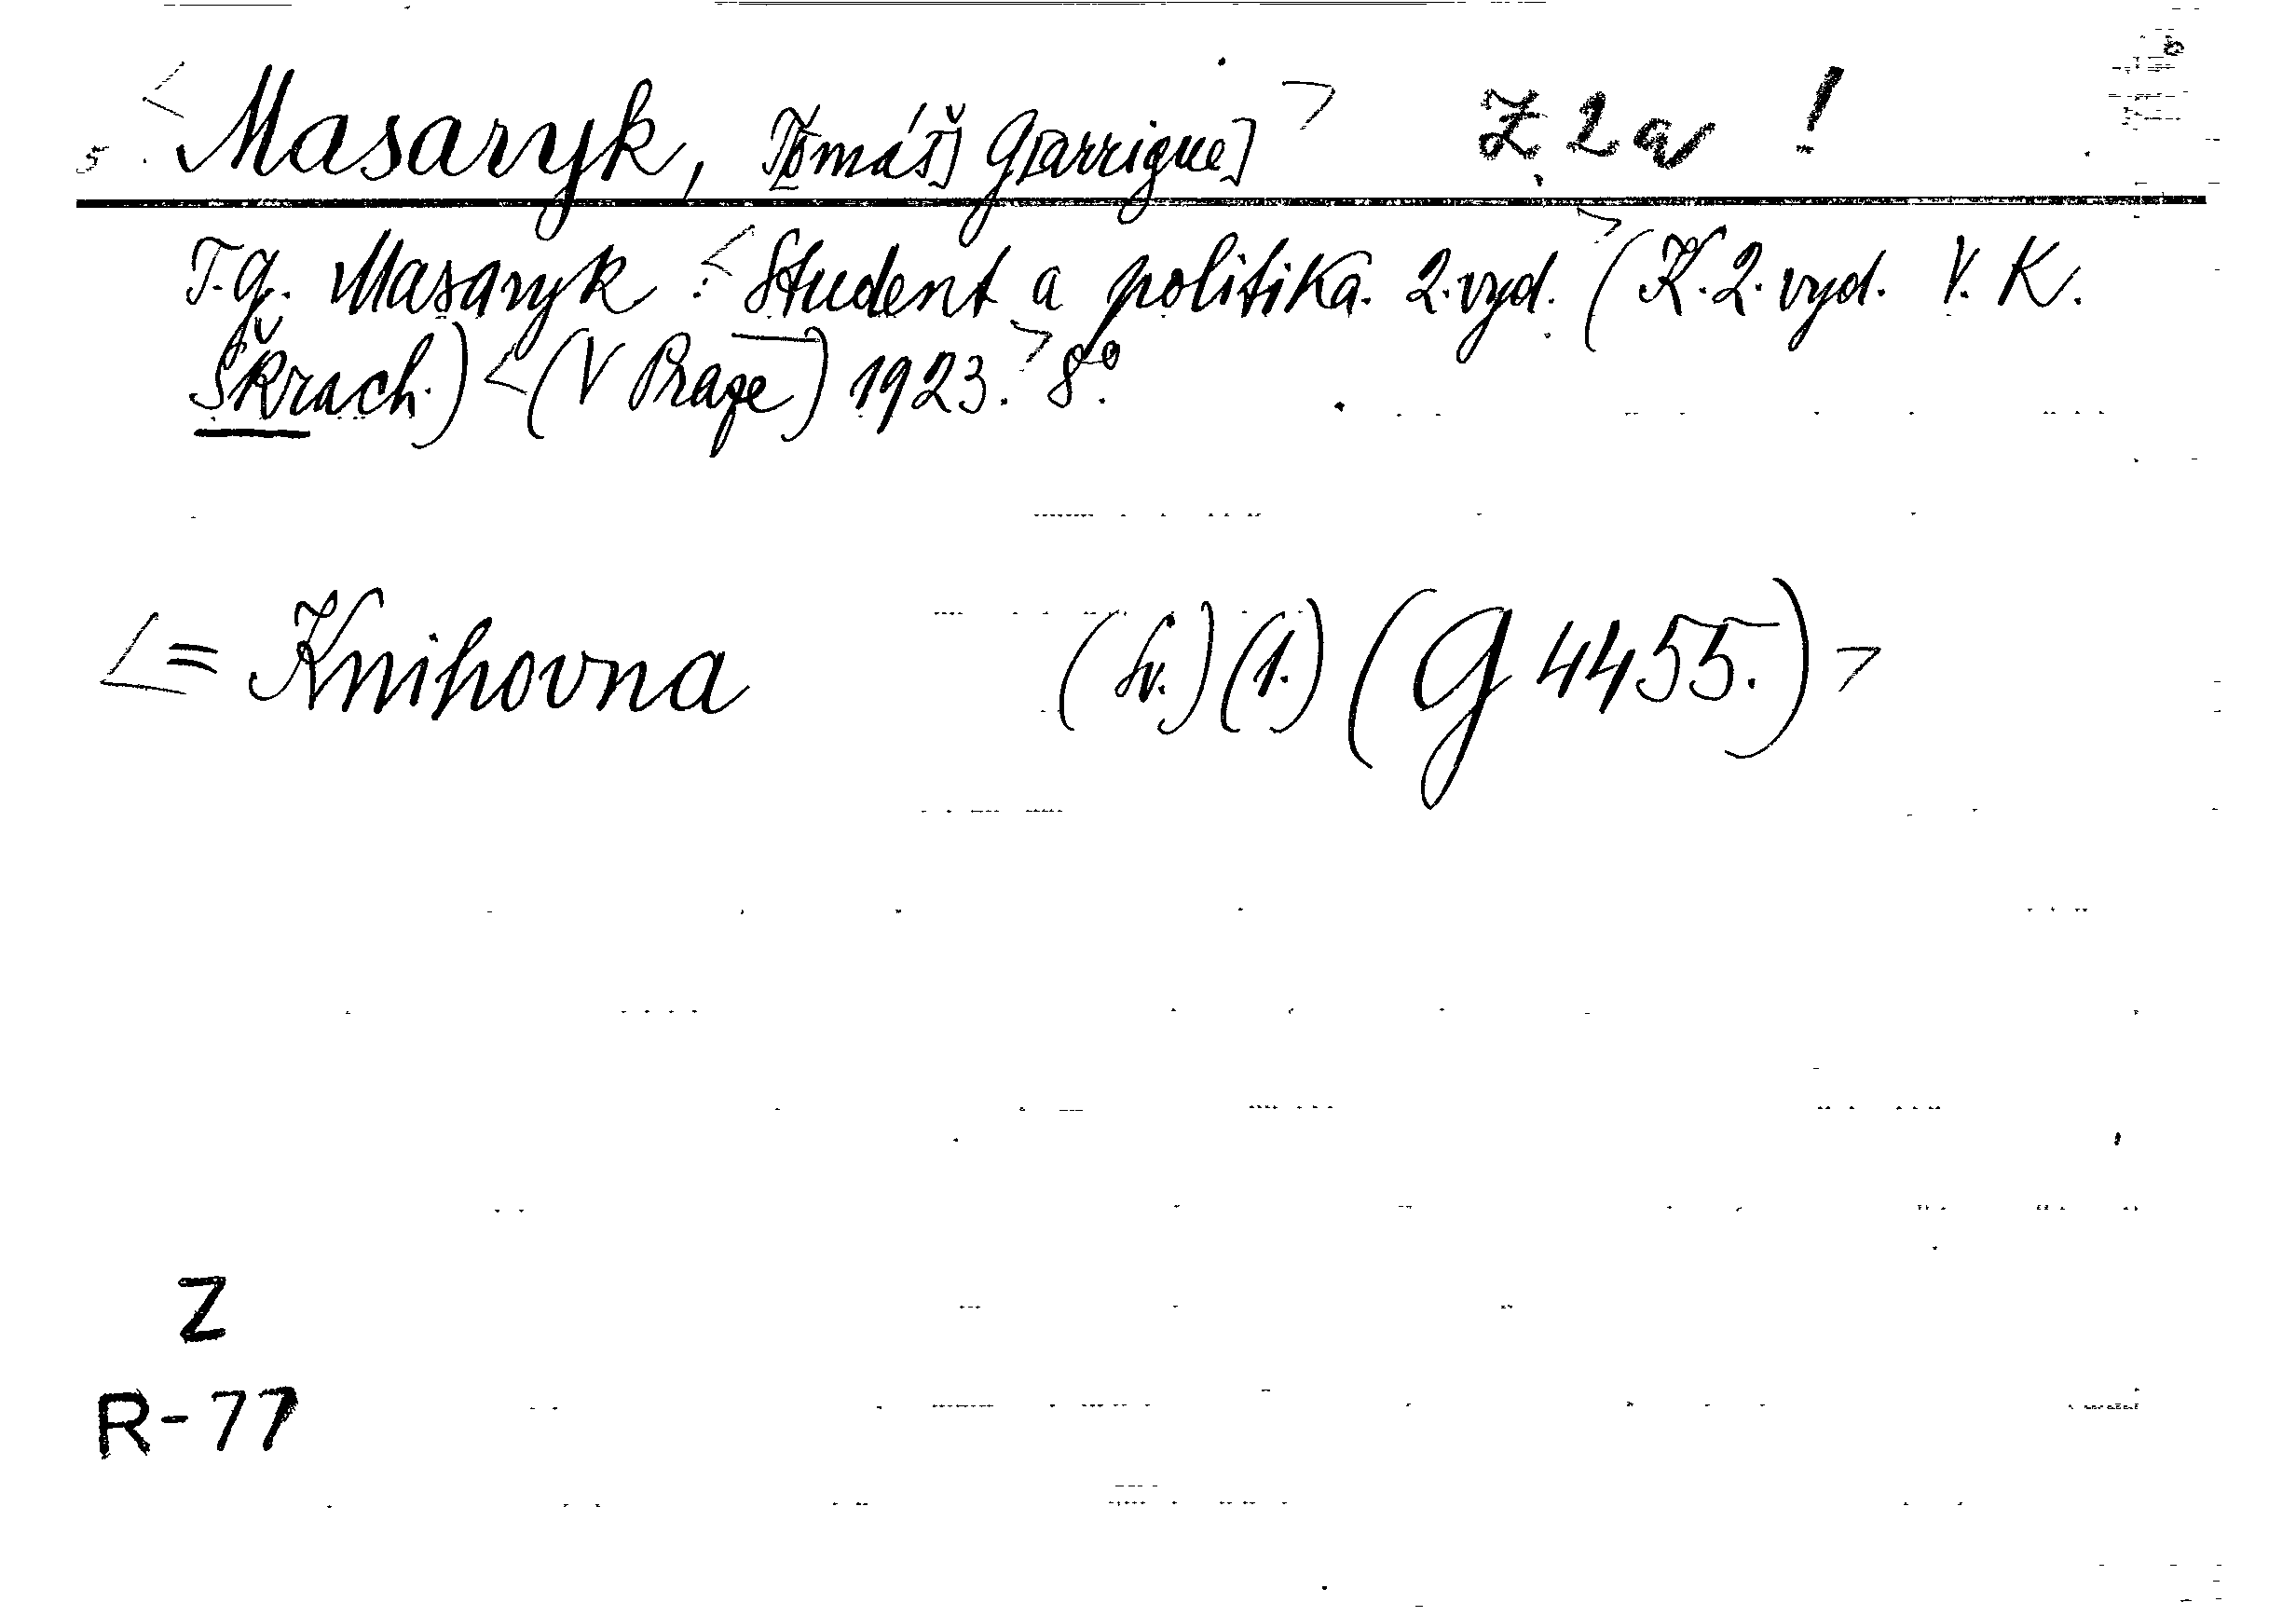 5 <Masaryk, T[omáš] G[arrigue]> Z 2a !
T.G. Masaryk : <Student a politika. 2. vyd.> (K. 2. vyd. V. K.
Škrach.) <(V Praze) 1923.> 8°.
<= Knihovna (Sv.) (1.) (G 4455.)>
Z
R-77